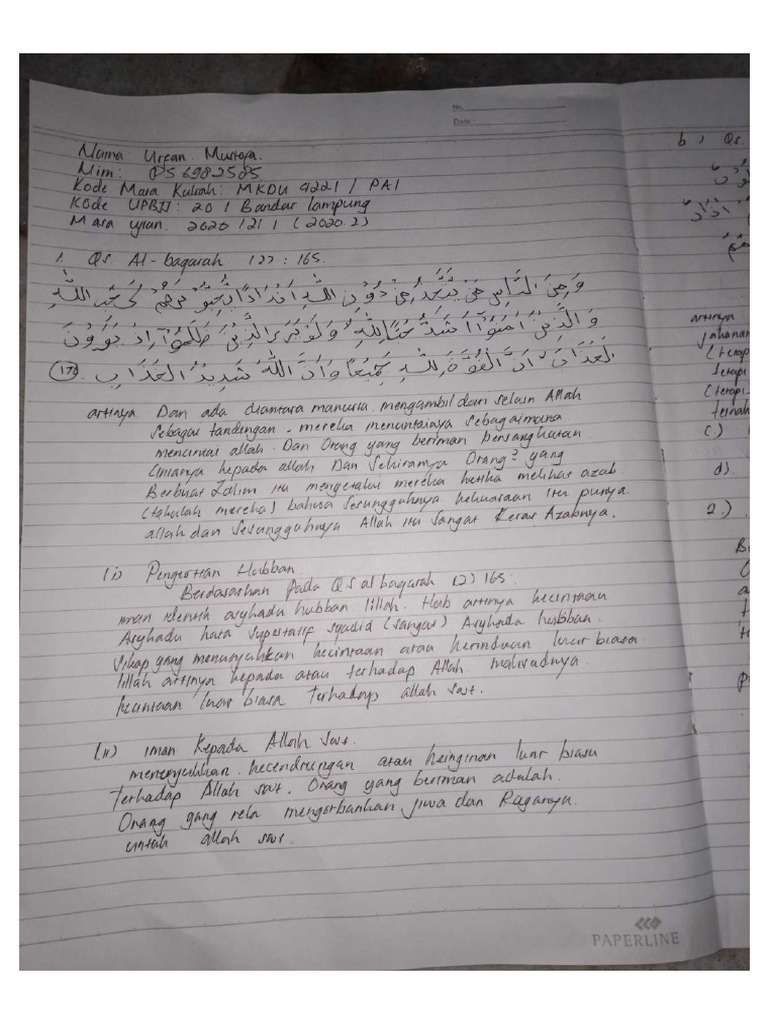 No.
Date :
Nama Urfan Mustofa.
Nim: 056982585.
Kode Mata Kuliah: MKDU 4221 / PAI
Kode UPBJJ: 20 / Bandar lampung
Masa ujian. 2020/21 1 (2020.2)
1. QS Al-baqarah (2) : 165.
وَمِنَ النَّاسِ مَنْ يَتَّخِذُ مِنْ دُوْنِ اللّٰهِ اَنْدَادًا يُّحِبُّوْنَهُمْ كَحُبِّ اللّٰهِ
وَالَّذِيْنَ اٰمَنُوْٓا اَشَدُّ حُبًّا لِّلّٰهِ وَلَوْ يَرَى الَّذِيْنَ ظَلَمُوْٓا اِذْ يَرَوْنَ
الْعَذَابَ اَنَّ الْقُوَّةَ لِلّٰهِ جَمِيْعًا وَاَنَّ اللّٰهَ شَدِيْدُ الْعَذَابِ
artinya Dan ada diantara manusia. mengambil dari selain Allah
sebagai tandingan. mereka mencintainya sebagaimana
mencintai allah. Dan Orang yang beriman bersangkutan
Cintanya kepada allah Dan Sekiranya Orang² yang
Berbuat Zalim itu mengetahui mereka ketika melihat azab
(takulah mereka) bahwa Sesungguhnya kekuasaan itu punya.
allah dan Sesungguhnya Allah itu Sangat Keras Azabnya.
(i) Pengertian Hubban
Berdasarkan pada QS al baqarah (2) 165.
iman identik asyhadu hubban lillah. Hub artinya kecintaan
Asyhadu kata Superlatif syadid (sangat) Asyhada hubban.
Sikap yang menunjukkan kecintaan atau kerinduan luar biasa.
lillah artinya kepada atau terhadap Allah. maksudnya.
kecintaan luar biasa Terhadap allah swt.
(ii) iman Kepada Allah Swt.
menunjukkan. kecendrungan atau keinginan luar biasa
Terhadap Allah swt. Orang yang beriman adalah.
Orang yang rela mengorbankan jiwa dan Raganya.
untuk allah swt.
PAPERLINE
b) Qs.
artinya
(tetapi
ternah
c)
d).
2.)